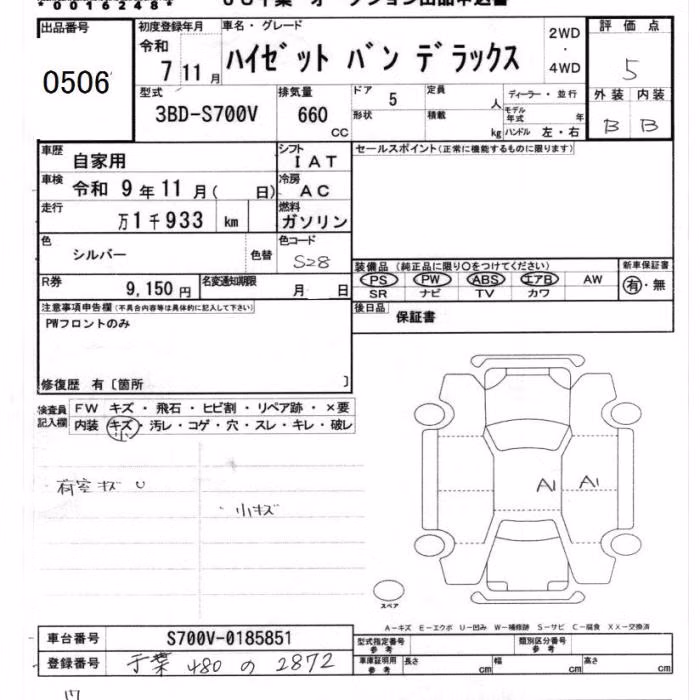 *00162484*
出品番号
0506
初度登録年月
令和
7 11 月
車名・グレード
ハイゼット バン デラックス
2WD
・
4WD
評価点
5
外装 内装
B B
型式
3BD-S700V
排気量
660
CC
ドア
5
形状
定員
人
積載
kg
ディーラー・並行
モデル年式 年
ハンドル 左・右
車歴
自家用
シフト
IAT
セールスポイント(正常に機能するものに限ります)
車検
令和 9 年 11 月( 日)
冷房
AC
走行
万 1 千 933 km
燃料
ガソリン
色
シルバー
色替
色コード
S28
装備品 (純正品に限り○をつけてください)
PS PW ABS エアB AW
SR ナビ TV カワ
新車保証書
有・無
R券
9,150 円
名変通知期限
月 日
後日品
保証書
注意事項申告欄(不具合内容等は具体的に記入して下さい)
PWフロントのみ
修復歴 有〔箇所 〕
検査員
記入欄
FW キズ・飛石・ヒビ割・リペア跡・×要
内装 キズ・汚レ・コゲ・穴・スレ・キレ・破レ
小
荷室キズ U
小キズ
A1 A1
スペア
A-キズ E-エクボ U-凹み W-補修跡 S-サビ C-腐食 XX-交換済
車台番号
S700V-0185851
型式指定番号
参考
類別区分番号
参考
登録番号
千葉 480 の 2872
車庫証明用
参考
長さ cm
幅 cm
高さ cm